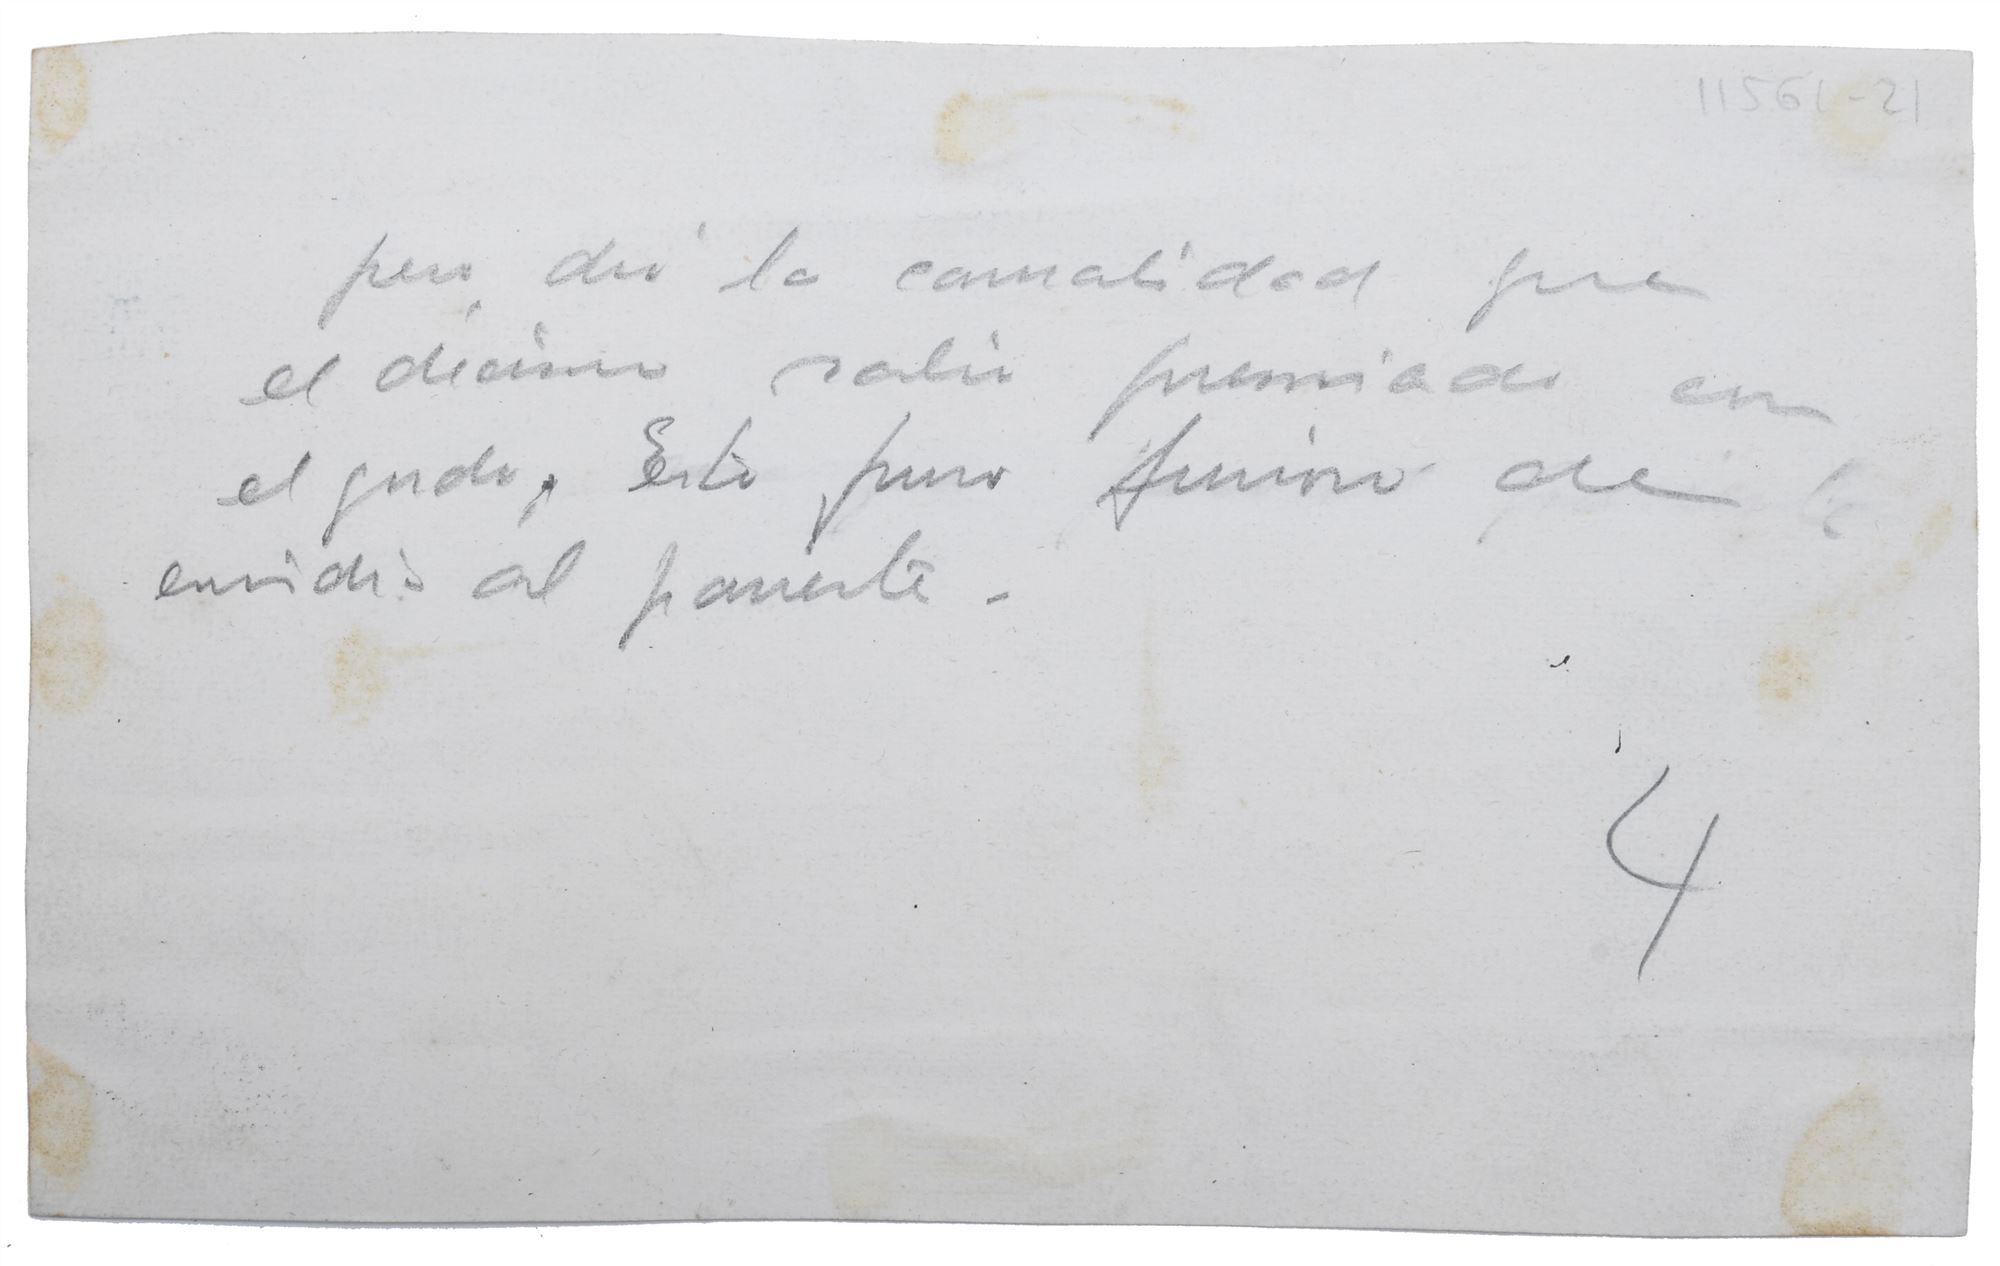 11561-21
pero dió la casualidad que
el décimo salio premiado con
el gordo. Esto puso furioso de
envidia al pariente.
4